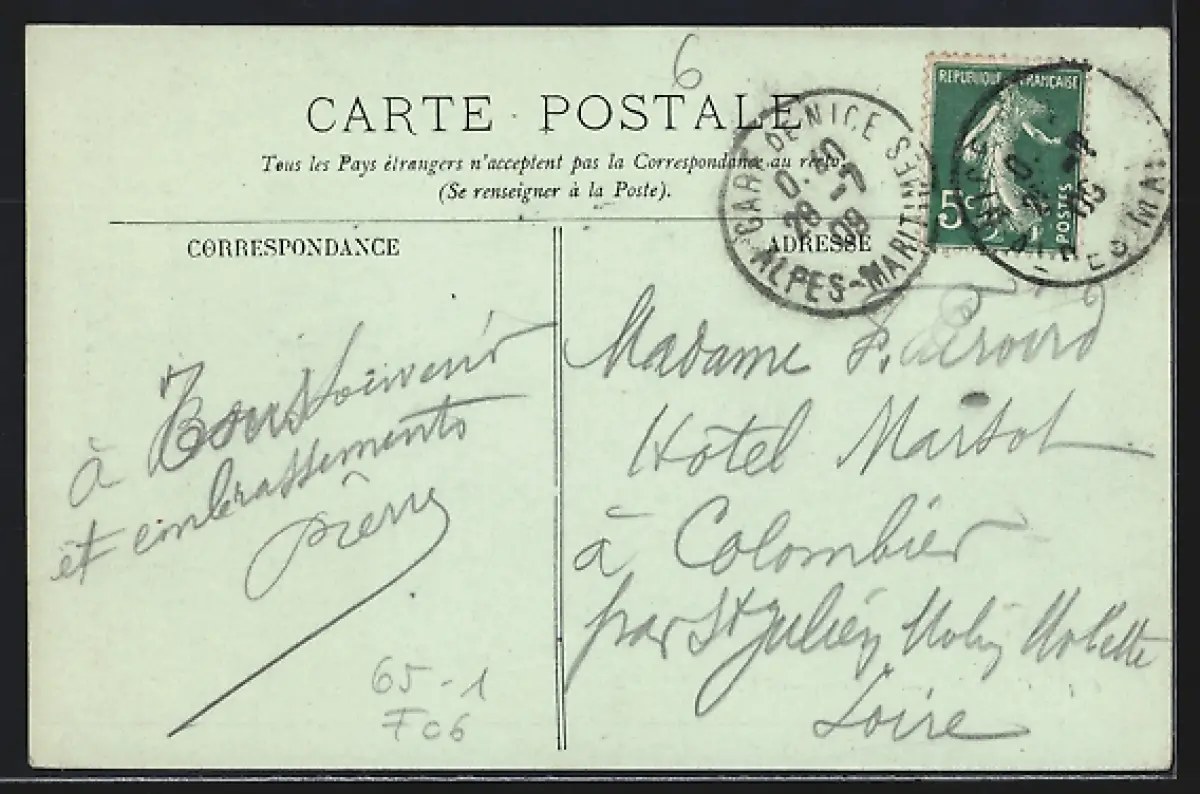 6
CARTE POSTALE
Tous les Pays étrangers n'acceptent pas la Correspondance au recto.
(Se renseigner à la Poste).
GARE DE NICE
28 -1
09
ALPES-MARITIMES
REPUBLIQUE FRANÇAISE
5c
POSTES
CORRESPONDANCE
à Bon Souvenir
et embrassements
Pierre
65-1
F06
ADRESSE
Madame
Hôtel
à Colombier
par St Julien Molin Molette
Loire